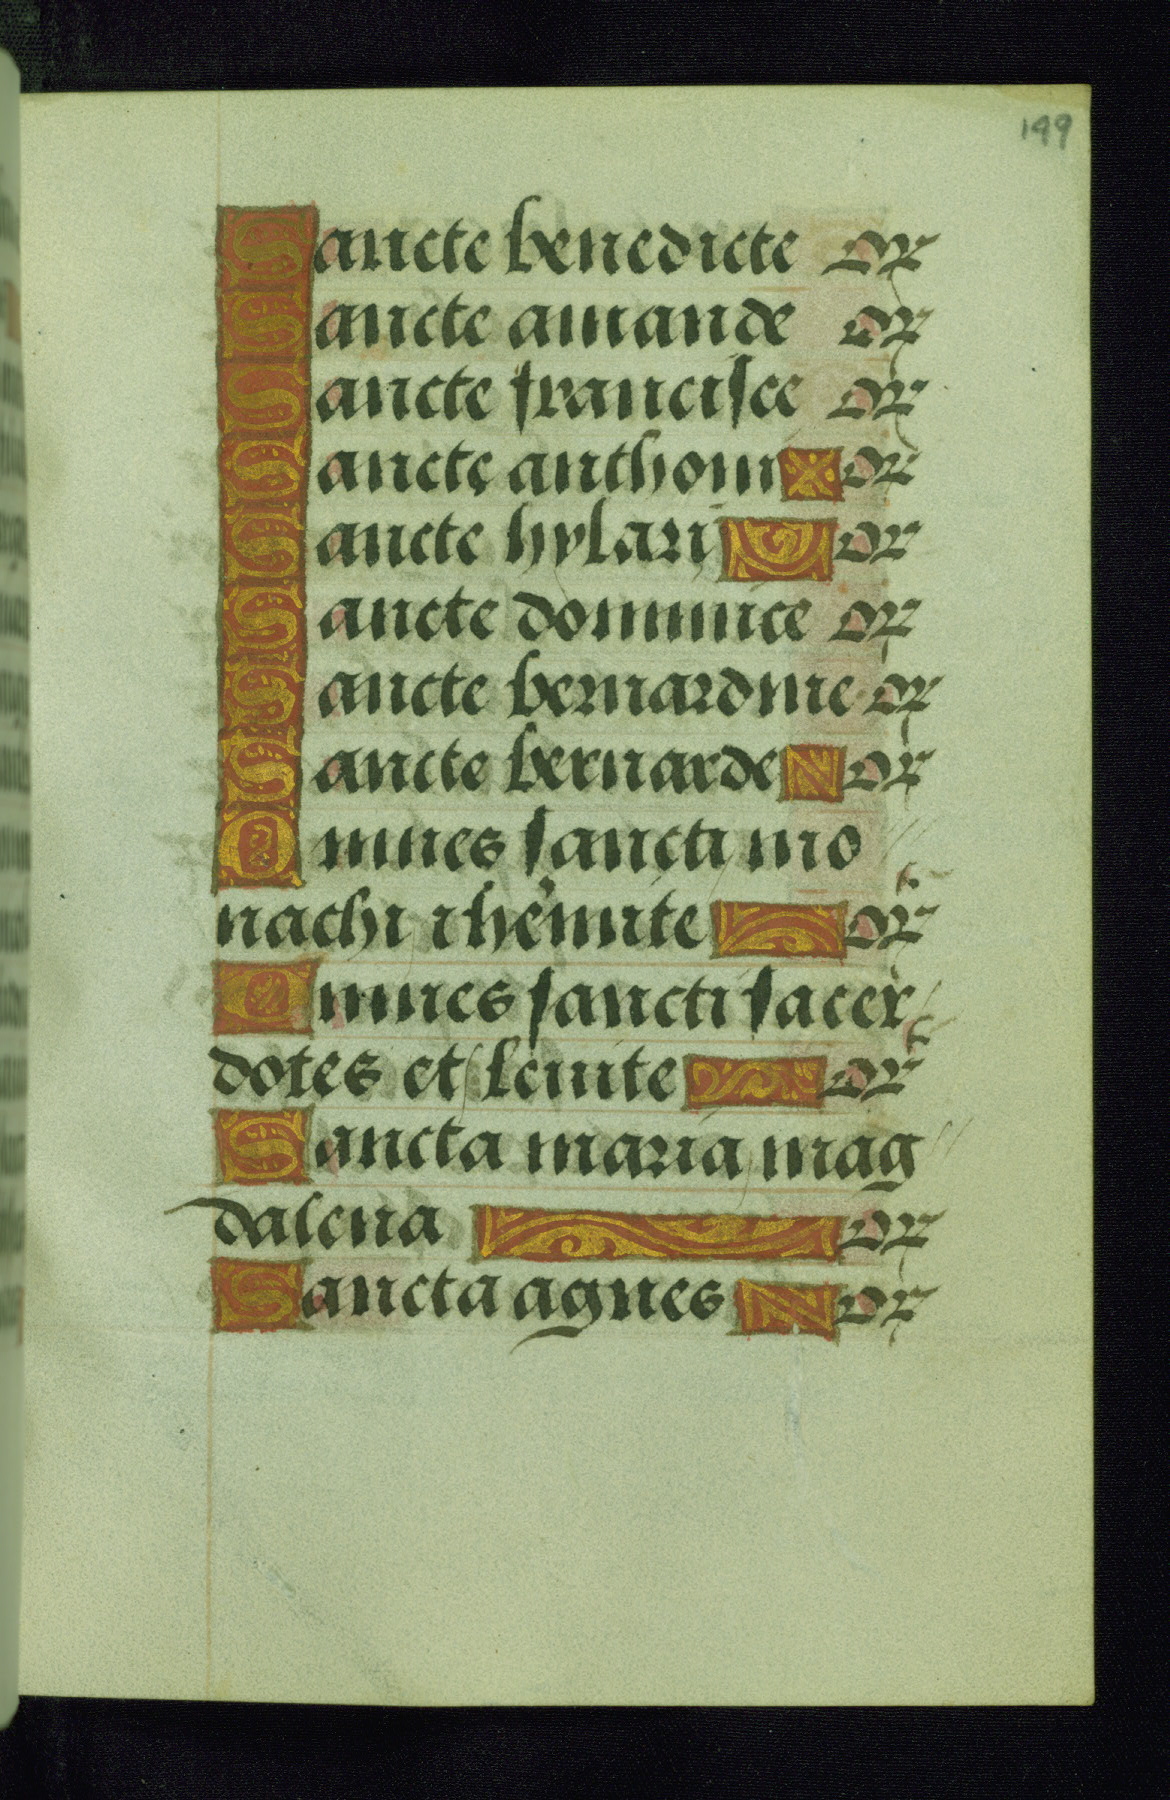 199
Sancte benedicte or
Sancte amande or
Sancte francisce or
Sancte anthoni or
Sancte hylari or
Sancte dominice or
Sancte bernardine or
Sancte bernarde or
Omnes sancti mo
nachi et heremite or
Omnes sancti sacer
dotes et leuite or
Sancta maria mag
dalena or
Sancta agnes or